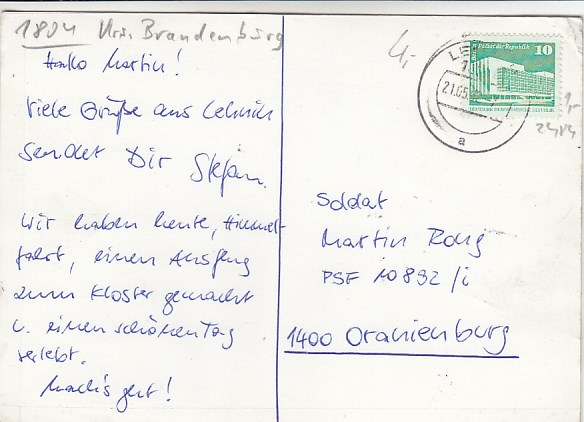 1804 Krs. Brandenburg
Hallo Martin!
Viele Grüße aus Lehnin
sendet Dir Stefan.
Wir haben heute, Himmel-
fahrt, einen Ausflug
zum Kloster gemacht
u. einen schönen Tag
verlebt.
Mach's gut!
4,-
Palast der Republik 10
DEUTSCHE DEMOKRATISCHE REPUBLIK
LE
21.05.
a
1,-
2484
Soldat
Martin Rong
PSF 10892/i
1400 Oranienburg